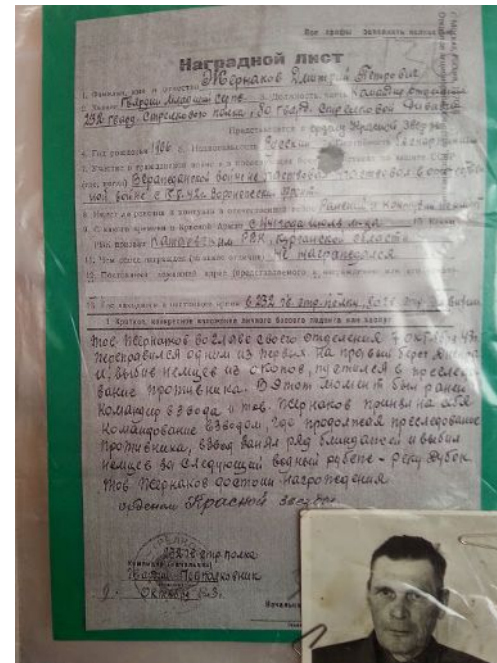 Все графы заполнять
Наградной лист
1. Фамилия, имя и отчество Жернаков Дмитрий Петрович
2. Звание Гвардии Младший Серж. 3. Должность, часть Командир отделения
232 гвард. Стрелкового полка, 80 гвард. Стрелковой дивизии
Представляется к ордену Красной Звезды
4. Год рождения 1906 5. Национальность Русский
7. Участие в гражданской войне
войне не участвовал участвовал в отечествен
ной войне с Воронежский Фронт
8. Имеет ли ранения и контузии в отечественной войне
9. С какого времени в Красной Армии
РВК, Курганской области
11. Чем ранее награжден (за какие отличия) Не награждался
12. Постоянный домашний адрес (представляемого к награждению
в 232 гв. стр. полку, 80 гв. стр. дивизии
1. Краткое, конкретное изложение личного боевого подвига или заслуг
Тов Жернаков во главе своего отделения 7 октября 43г
переправился одним из первых на правый берег Днепра
и, выбив немцев из окопов, пустился в преследо
вание противника. В этот момент был ранен
Командир взвода и тов. Жернаков принял на себя
Командование взводом, где продолжая преследование
противника, взвод занял ряд блиндажей и выбил
немцев за следующий водный рубеж - реку
Тов Жернаков достоин награждения
орденом Красной Звезды
232 гв стр полка
Командир (начальник)
Гвардии Подполковник
Октября
Начальник